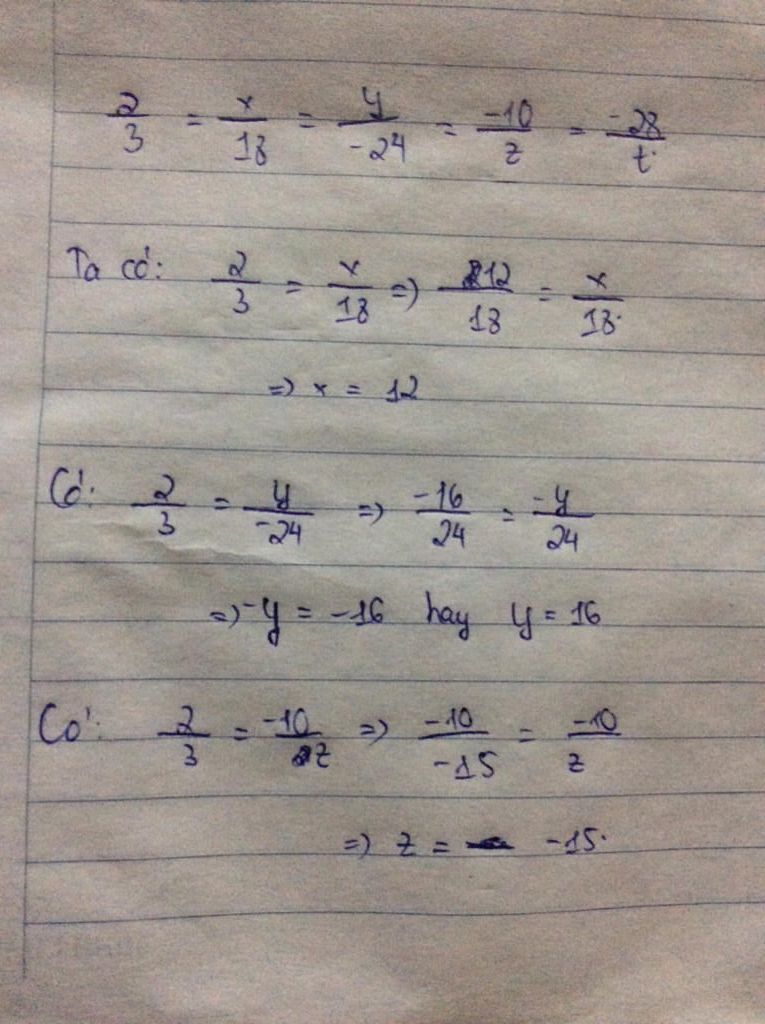 2/3 = x/18 = y/-24 = -10/z = -28/t
Ta có: 2/3 = x/18 => 12/18 = x/18
=> x = 12
Có: 2/3 = y/-24 => -16/24 = -y/24
=> -y = -16 hay y = 16
Có: 2/3 = -10/z => -10/-15 = -10/z
=> z = -15